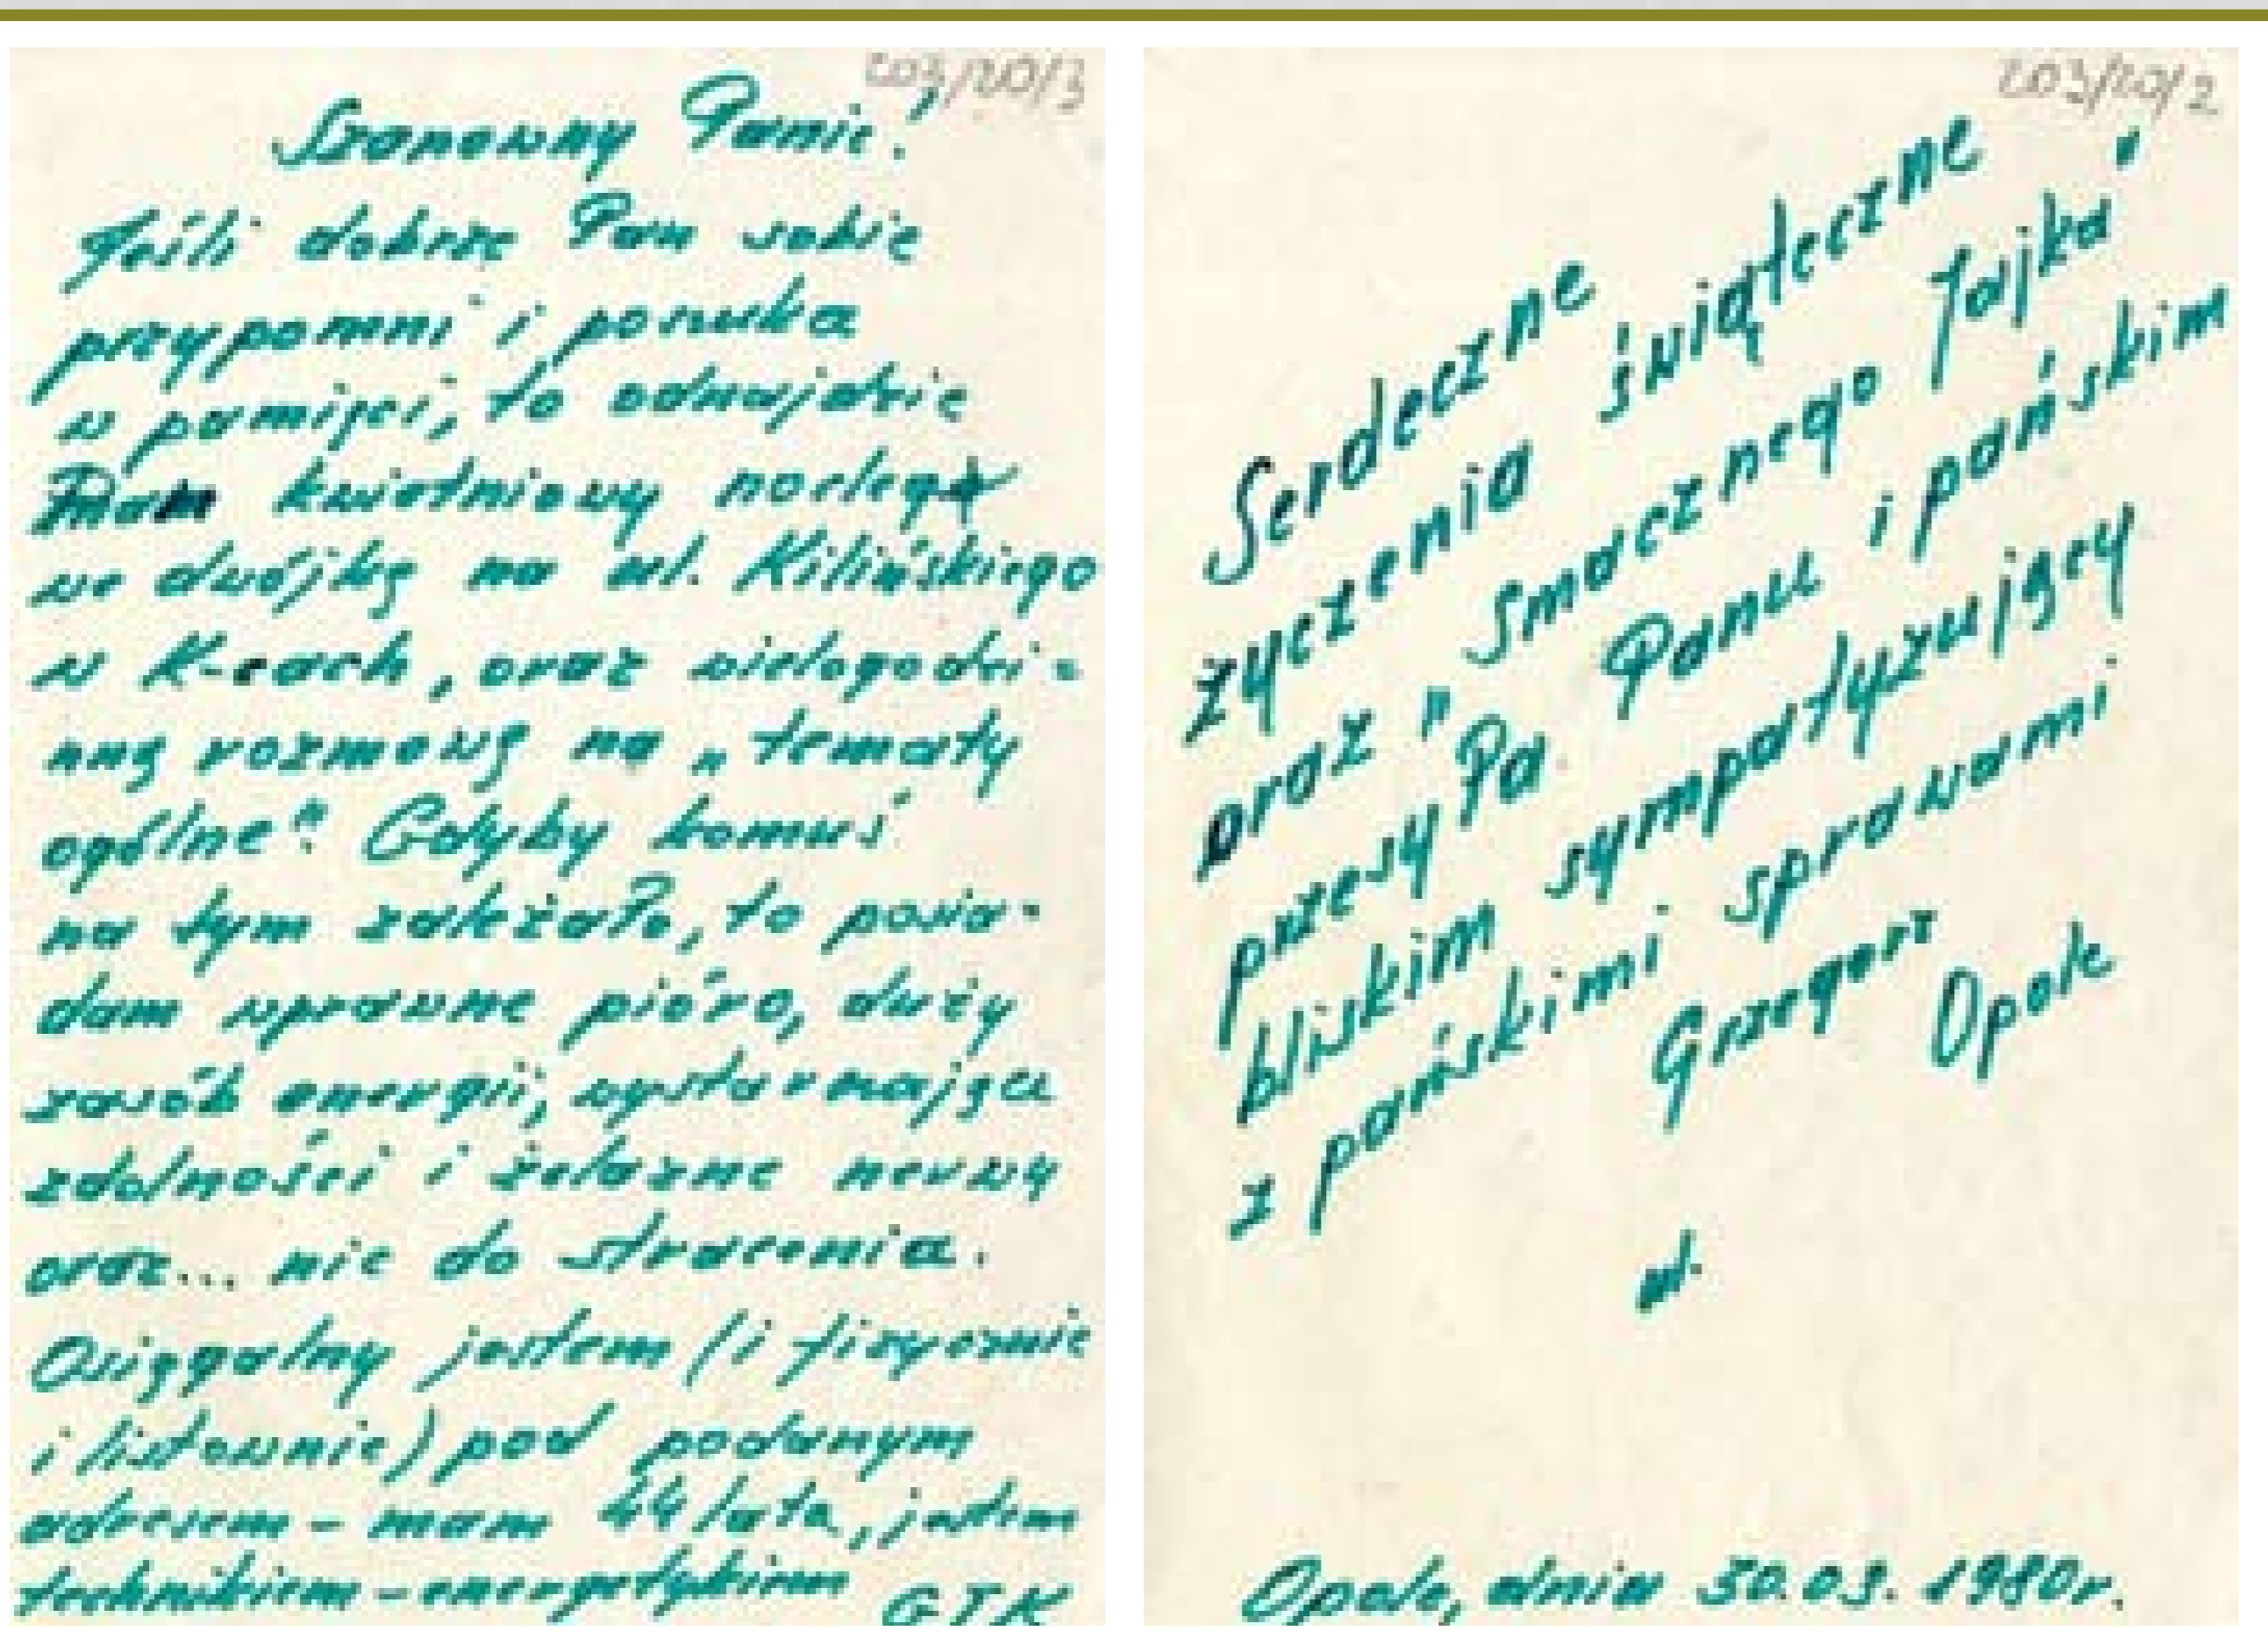 203/20/3
Szanowny Panie!
Jeśli dobrze Pan sobie
przypomni i poszuka
w pamięci, to odnajdzie
kwietniowy nocleg
we dwójkę na ul. Kilińskiego
w K-cach, oraz wielogodzi-
nną rozmowę na "tematy
ogólne". Gdyby komuś
na tym zależało, to posia-
dam wprawne pióro, duży
zasób energii, wystarczającą
zdolności i żelazne nerwy
oraz... nic do stracenia.
Osiągalny jestem (i fizycznie
i listownie) pod podanym
adresem - mam 44 lata, jestem
technikiem-energetykiem GTK
203/20/2
Serdeczne
życzenia świąteczne
oraz "Smacznego Jajka"
przesyła Panu i pańskim
bliskim sympatyzujący
z pańskimi sprawami
Grzegorz
Opole
ul.
Opole, dnia 30.03.1980r.